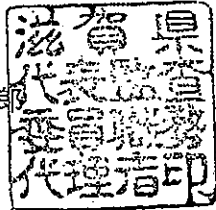 滋賀県
代表監査
委員職務
代理者印